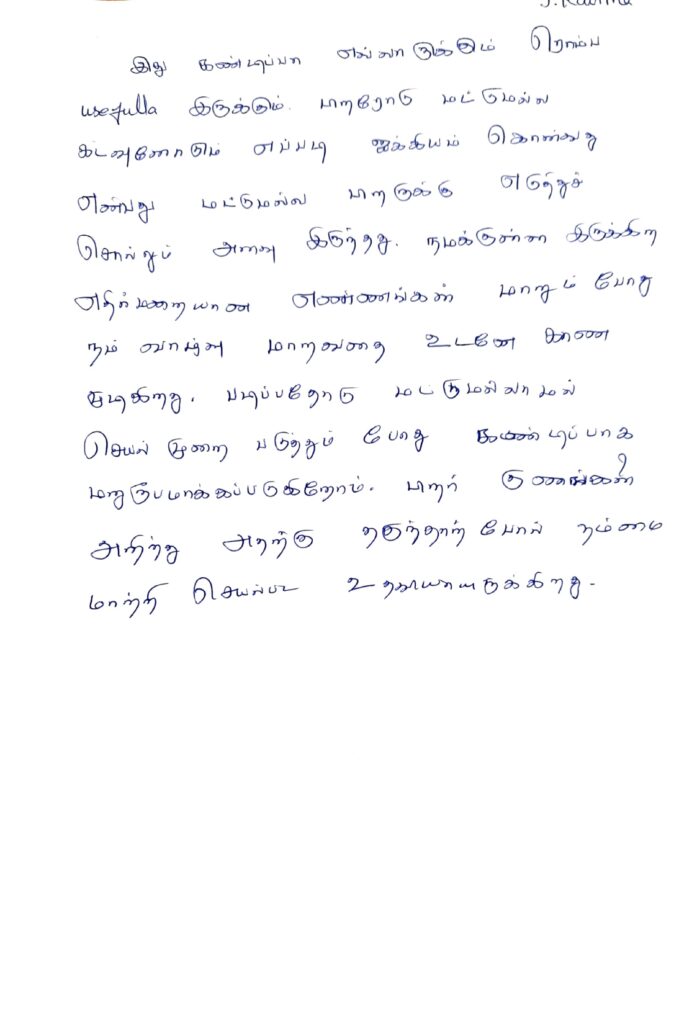 இது கண்டிப்பா எல்லாருக்கும் ரொம்ப
usefulla இருக்கும். பிறரோடு மட்டுமல்ல
கடவுளோடும் எப்படி ஐக்கியம் கொள்வது
என்பது மட்டுமல்ல பிறருக்கு எடுத்துச்
சொல்லும் அளவு இருந்தது. நமக்குள்ள இருக்கிற
எதிர்மறையான எண்ணங்கள் மாறும் போது
நம் வாழ்வு மாறுவதை உடனே காண
முடிகிறது. படிப்பதோடு மட்டுமல்லாமல்
செயல் முறை படுத்தும் போது கண்டிப்பாக
மறுரூபமாக்கப்படுகிறோம். பிறர் குணங்கள்
அறிந்து அதற்கு தகுந்தாற் போல் நம்மை
மாற்றி செயல்பட உதவியாயிருக்கிறது.